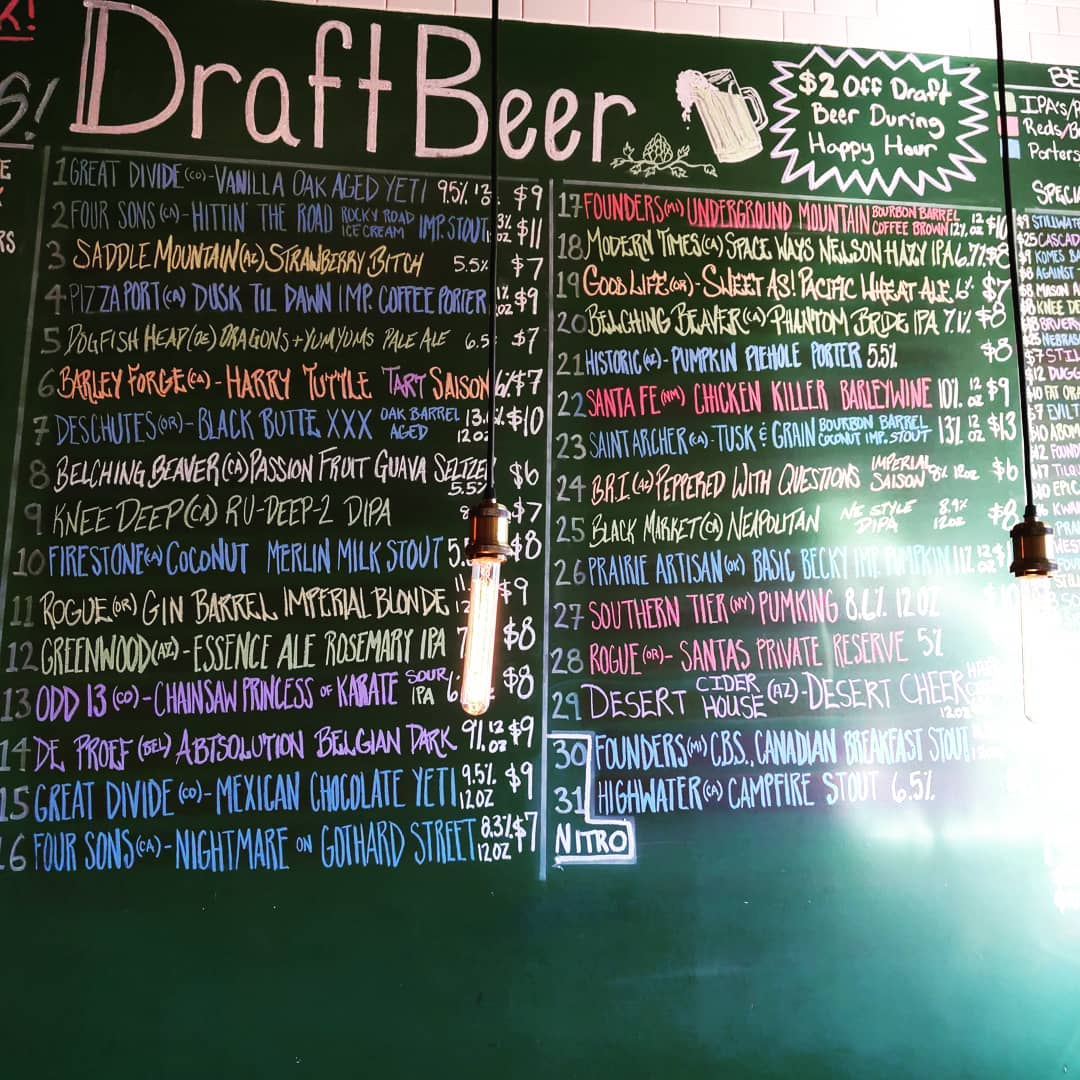 Draft Beer
$2 Off Draft
Beer During
Happy Hour
1 GREAT DIVIDE (CO) - VANILLA OAK AGED YETI 9.5% $9
2 FOUR SONS (CA) - HITTIN' THE ROAD ROCKY ROAD ICE CREAM IMP. STOUT OZ $11
3 SADDLE MOUNTAIN (AZ) STRAWBERRY BITCH 5.5% $7
4 PIZZA PORT (CA) DUSK TIL DAWN IMP. COFFEE PORTER OZ $9
5 DOGFISH HEAD (DE) DRAGONS + YUMYUMS PALE ALE 6.5 $7
6 BARLEY FORGE (CA) - HARRY TUTTLE TART SAISON 6% $7
7 DESCHUTES (OR) - BLACK BUTTE XXX OAK BARREL AGED 12 OZ $10
8 BELCHING BEAVER (CA) PASSION FRUIT GUAVA SELTZER 5.5% $6
9 KNEE DEEP (CA) RU-DEEP-2 DIPA $7
10 FIRESTONE (CA) COCONUT MERLIN MILK STOUT $8
11 ROGUE (OR) GIN BARREL IMPERIAL BLONDE $9
12 GREENWOOD (AZ) - ESSENCE ALE ROSEMARY IPA $8
13 ODD 13 (CO) - CHAINSAW PRINCESS OF KARATE SOUR IPA $8
14 DE PROEF (BEL) ABTSOLUTION BELGIAN DARK 9% 12 OZ $9
15 GREAT DIVIDE (CO) - MEXICAN CHOCOLATE YETI 9.5% 12OZ $9
16 FOUR SONS (CA) - NIGHTMARE ON GOTHARD STREET 8.3% 12OZ $7
17 FOUNDERS (MI) UNDERGROUND MOUNTAIN BOURBON BARREL COFFEE BROWN 12% 12 OZ $10
18 MODERN TIMES (CA) SPACE WAYS NELSON HAZY IPA 6.7% $8
19 GOOD LIFE (OR) - SWEET AS! PACIFIC WHEAT ALE 6% $7
20 BELCHING BEAVER (CA) PHANTOM BRIDE IPA 7.1% $8
21 HISTORIC (AZ) - PUMPKIN PIEHOLE PORTER 5.5% $8
22 SANTA FE (NM) CHICKEN KILLER BARLEYWINE 10% 12 OZ $9
23 SAINT ARCHER (CA) - TUSK & GRAIN BOURBON BARREL COCONUT IMP. STOUT 13% 12 OZ $13
24 B.R.I (AZ) PEPPERED WITH QUESTIONS IMPERIAL SAISON 8% 12OZ $6
25 BLACK MARKET (CA) NEAPOLITAN NE STYLE DIPA 8.9% 12OZ $8
26 PRAIRIE ARTISAN (OK) BASIC BECKY IMP. PUMPKIN 11% 12 OZ
27 SOUTHERN TIER (NY) PUMKING 8.6% 12 OZ
28 ROGUE (OR) - SANTAS PRIVATE RESERVE 5%
29 DESERT CIDER HOUSE (AZ) - DESERT CHEER 12OZ
30 FOUNDERS (MI) C.B.S., CANADIAN BREAKFAST STOUT
31 HIGHWATER (CA) CAMPFIRE STOUT 6.5%
NITRO
BE
IPA'S/P
Reds/B
Porters
SPECIA